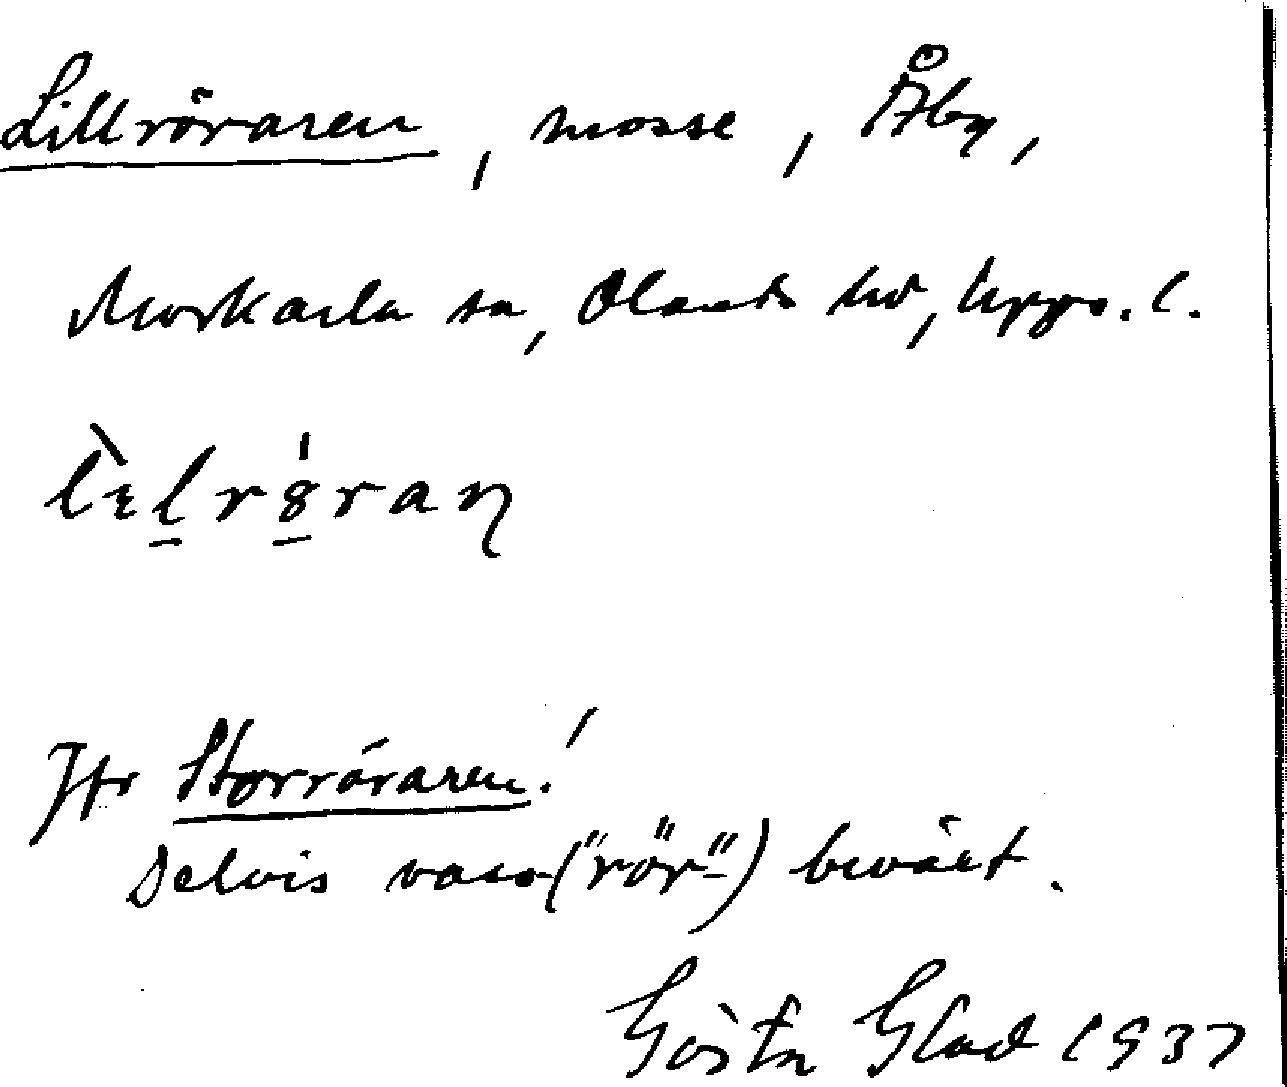 Lillröraren, mosse, Åby,
Morkarla sn, Olands hd, Upps. l.
lɪ̀lrö́ran
Jfr Storröraren!
Delvis vass ("rör-") bevuxt.
Gösta Glad 1937